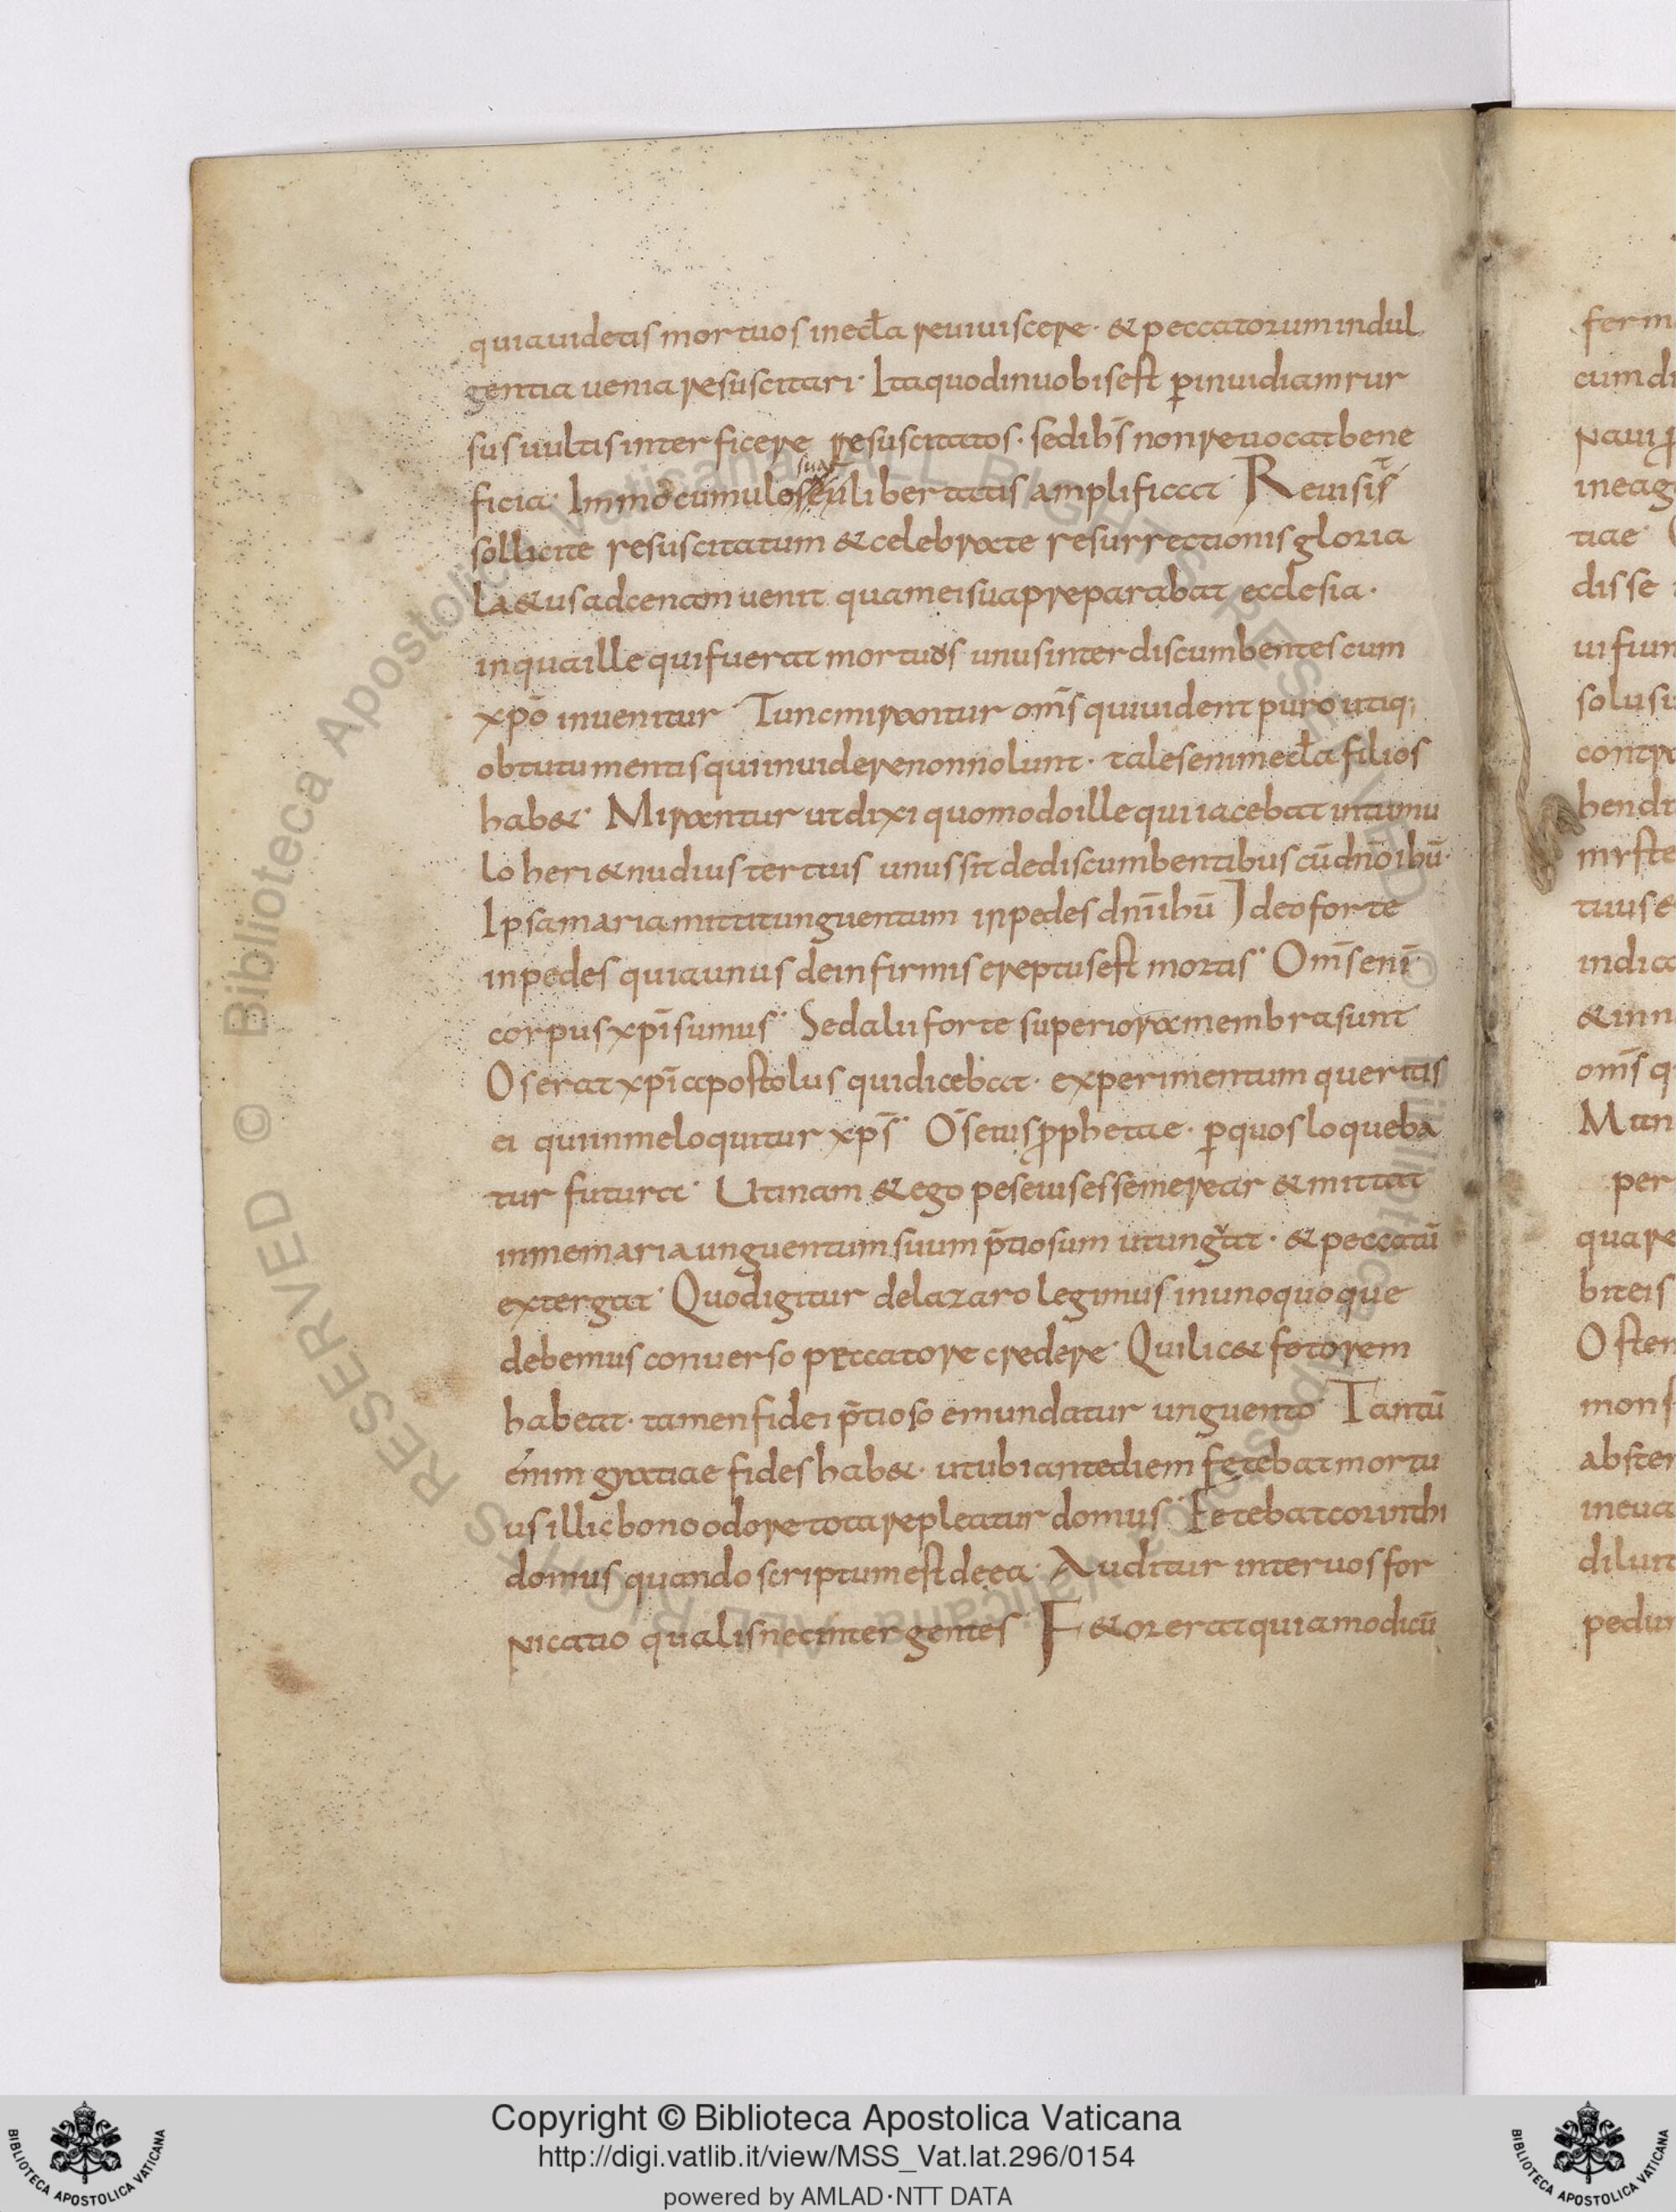 quia uidetis mortuos in eccła reuiuiscere · & peccatorum indul
gentia uenia resuscitari · Ita quod in uobis est p̱ inuidiam rur
sus uultis interficere resuscitatos · sed ib̄s non reuocat bene
ficia · Immo cumulos suae liberalitatis amplificat · Reuisit
sollicite resuscitatum & celebrate resurrectionis gloria
la&us ad cenam uenit quam ei sua preparabat ecclesia ·
in qua ille qui fuerat mortuos unus inter discumbentes cum
xp̄o inuenitur · Tunc mirantur om̄s qui uident puro utiq;
obtutu mentis qui inuidere non nolunt · tales enim eccła filios
hab& · Mirantur ut dixi quomodo ille qui iacebat in tumu
lo heri & nudius tertius unus sit de discumbentibus cū dn̄o ihū ·
Ipsa maria mittit unguentum in pedes dn̄i ihū Ideo forte
in pedes quia unus de infirmis ereptus est mortis · Om̄s enī
corpus xp̄i sumus · Sed alii forte superiora membra sunt
Os erat xp̄i apostolus qui dicebat · experimentum queritis
ei qui in me loquitur xp̄s · Os eius ꝓphetae · p̱ quos loqueba
tur futura · Utinam & ego pes eius esse merear & mittat
in me maria unguentum suum p̄tiosum ut ungat · & peccatū
extergat · Quod igitur de lazaro legimus in unoquoque
debemus conuerso peccatore credere · Qui lic& fotorem
habeat · tamen fidei p̄tioso emundatur unguento Tantū
enim gratiae fides hab& · ut ubi ante diem fetebat mortu
us illic bono odore tota repleatur domus · Fetebat corinthi
domus quando scriptum est de ea · Auditur inter uos for
nicatio qualis nec inter gentes · F&or erat quia modicū
ferm
cum di
ineag
tiae
disse
ui fiun
solus
contra
hendi
tuus e
indica
& inn
om̄s q
Man
per
quare
bit eis
Osten
mons
abster
ineua
diluit
pedu
Copyright © Biblioteca Apostolica Vaticana
http://digi.vatlib.it/view/MSS_Vat.lat.296/0154
powered by AMLAD·NTT DATA
BIBLIOTECA APOSTOLICA VATICANA
BIBLIOTECA APOSTOLICA VATICANA